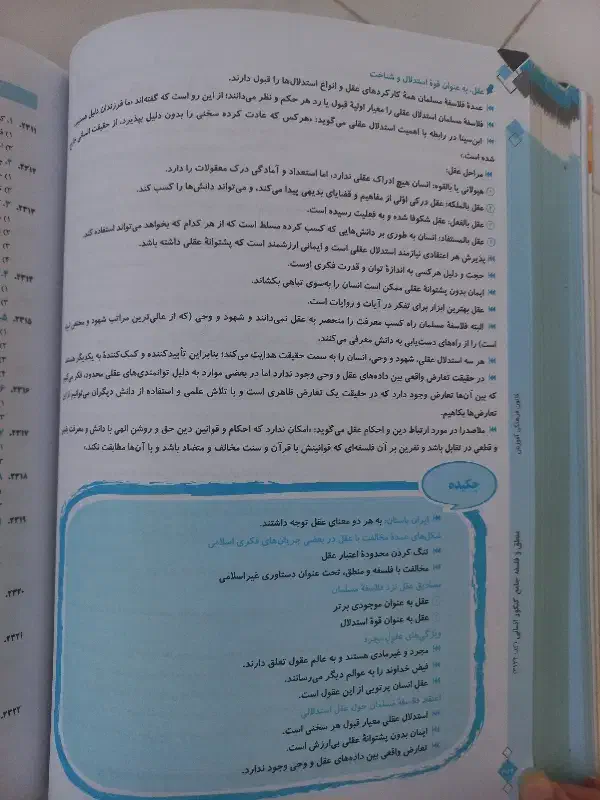 عقل، به عنوان قوهٔ استدلال و شناخت
عمدهٔ فلاسفهٔ مسلمان همهٔ کارکردهای عقل و انواع استدلال‌ها را قبول دارند.
فلاسفهٔ مسلمان استدلال عقلی را معیار اولیهٔ قبول یا رد هر حکم و نظر می‌دانند؛ از این رو است که گفته‌اند «ما فرزندان دلیل هستیم.
ابن‌سینا در رابطه با اهمیت استدلال عقلی می‌گوید: «هرکس که عادت کرده سخنی را بدون دلیل بپذیرد، از حقیقت انسانی خارج
شده است.»
مراحل عقل:
۱ هیولانی یا بالقوه: انسان هیچ ادراک عقلی ندارد، اما استعداد و آمادگی درک معقولات را دارد.
۲ عقل بالملکه: عقل درکی اوّلی از مفاهیم و قضایای بدیهی پیدا می‌کند، و می‌تواند دانش‌ها را کسب کند.
۳ عقل بالفعل: عقل شکوفا شده و به فعلیت رسیده است.
۴ عقل بالمستفاد: انسان به طوری بر دانش‌هایی که کسب کرده مسلط است که از هر کدام که بخواهد می‌تواند استفاده کند.
پذیرش هر اعتقادی نیازمند استدلال عقلی است و ایمانی ارزشمند است که پشتوانهٔ عقلی داشته باشد.
حجت و دلیل هرکسی به اندازهٔ توان و قدرت فکری اوست.
ایمان بدون پشتوانهٔ عقلی ممکن است انسان را به‌سوی تباهی بکشاند.
عقل بهترین ابزار برای تفکر در آیات و روایات است.
البته فلاسفهٔ مسلمان راه کسب معرفت را منحصر به عقل نمی‌دانند و شهود و وحی (که از عالی‌ترین مراتب شهود و مختص
است) را از راه‌های دست‌یابی به دانش معرفی می‌کنند.
هر سه استدلال عقلی، شهود و وحی، انسان را به سمت حقیقت هدایت می‌کند؛ بنابراین تأییدکننده و کمک‌کنندهٔ به یکدیگر هستند.
در حقیقت تعارض واقعی بین داده‌های عقل و وحی وجود ندارد اما در بعضی موارد به دلیل توانمندی‌های عقلی محدود، فکر می‌کنیم
که بین آن‌ها تعارض وجود دارد که در حقیقت یک تعارض ظاهری است و با تلاش علمی و استفاده از دانش دیگران می‌توانیم از این
تعارض‌ها بکاهیم.
ملاصدرا در مورد ارتباط دین و احکام عقل می‌گوید: «امکان ندارد که احکام و قوانین دین حق و روشن الهی با دانش و معرفت یقینی
و قطعی در تقابل باشد و نفرین بر آن فلسفه‌ای که قوانینش با قرآن و سنت مخالف و متضاد باشد و با آن‌ها مطابقت نکند.»
چکیده
ایران باستان، به هر دو معنای عقل توجه داشتند.
شکل‌های عمدهٔ مخالفت با عقل در بعضی جریان‌های فکری اسلامی
تنگ کردن محدودهٔ اعتبار عقل
مخالفت با فلسفه و منطق، تحت عنوان دستاوری غیراسلامی
مصادیق عقل نزد فلاسفهٔ مسلمان
عقل به عنوان موجودی برتر
عقل به عنوان قوهٔ استدلال
ویژگی‌های عقول مجرد
مجرد و غیرمادی هستند و به عالم عقول تعلق دارند.
فیض خداوند را به عوالم دیگر می‌رسانند.
عقل انسان پرتویی از این عقول است.
اعتقاد فلاسفهٔ مسلمان حول عقل استدلالی
استدلال عقلی معیار قبول هر سخنی است.
ایمان بدون پشتوانهٔ عقلی بی‌ارزش است.
تعارض واقعی بین داده‌های عقل و وحی وجود ندارد.
کانون فرهنگی آموزش
منطق و فلسفه جامع کنکور انسانی
۲۳۱۲.
۲۳۱۳.
۲۳۱۴.
۲۳۱۵.
۲۳۱۶.
۲۳۱۷.
۲۳۱۸.
۲۳۱۹.
۲۳۲۰.
۲۳۲۱.
۲۳۲۲.